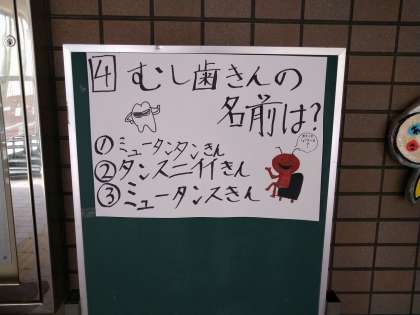 4 むし歯きんの
名前は?
① ミュータンタンきん
② タンスニイイきん
③ ミュータンスきん